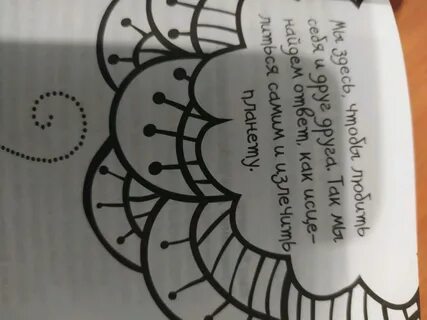 Мы здесь, чтобы любить
себя и друг друга. Так мы
найдем ответ, как исце-
литься самим и излечить
планету.